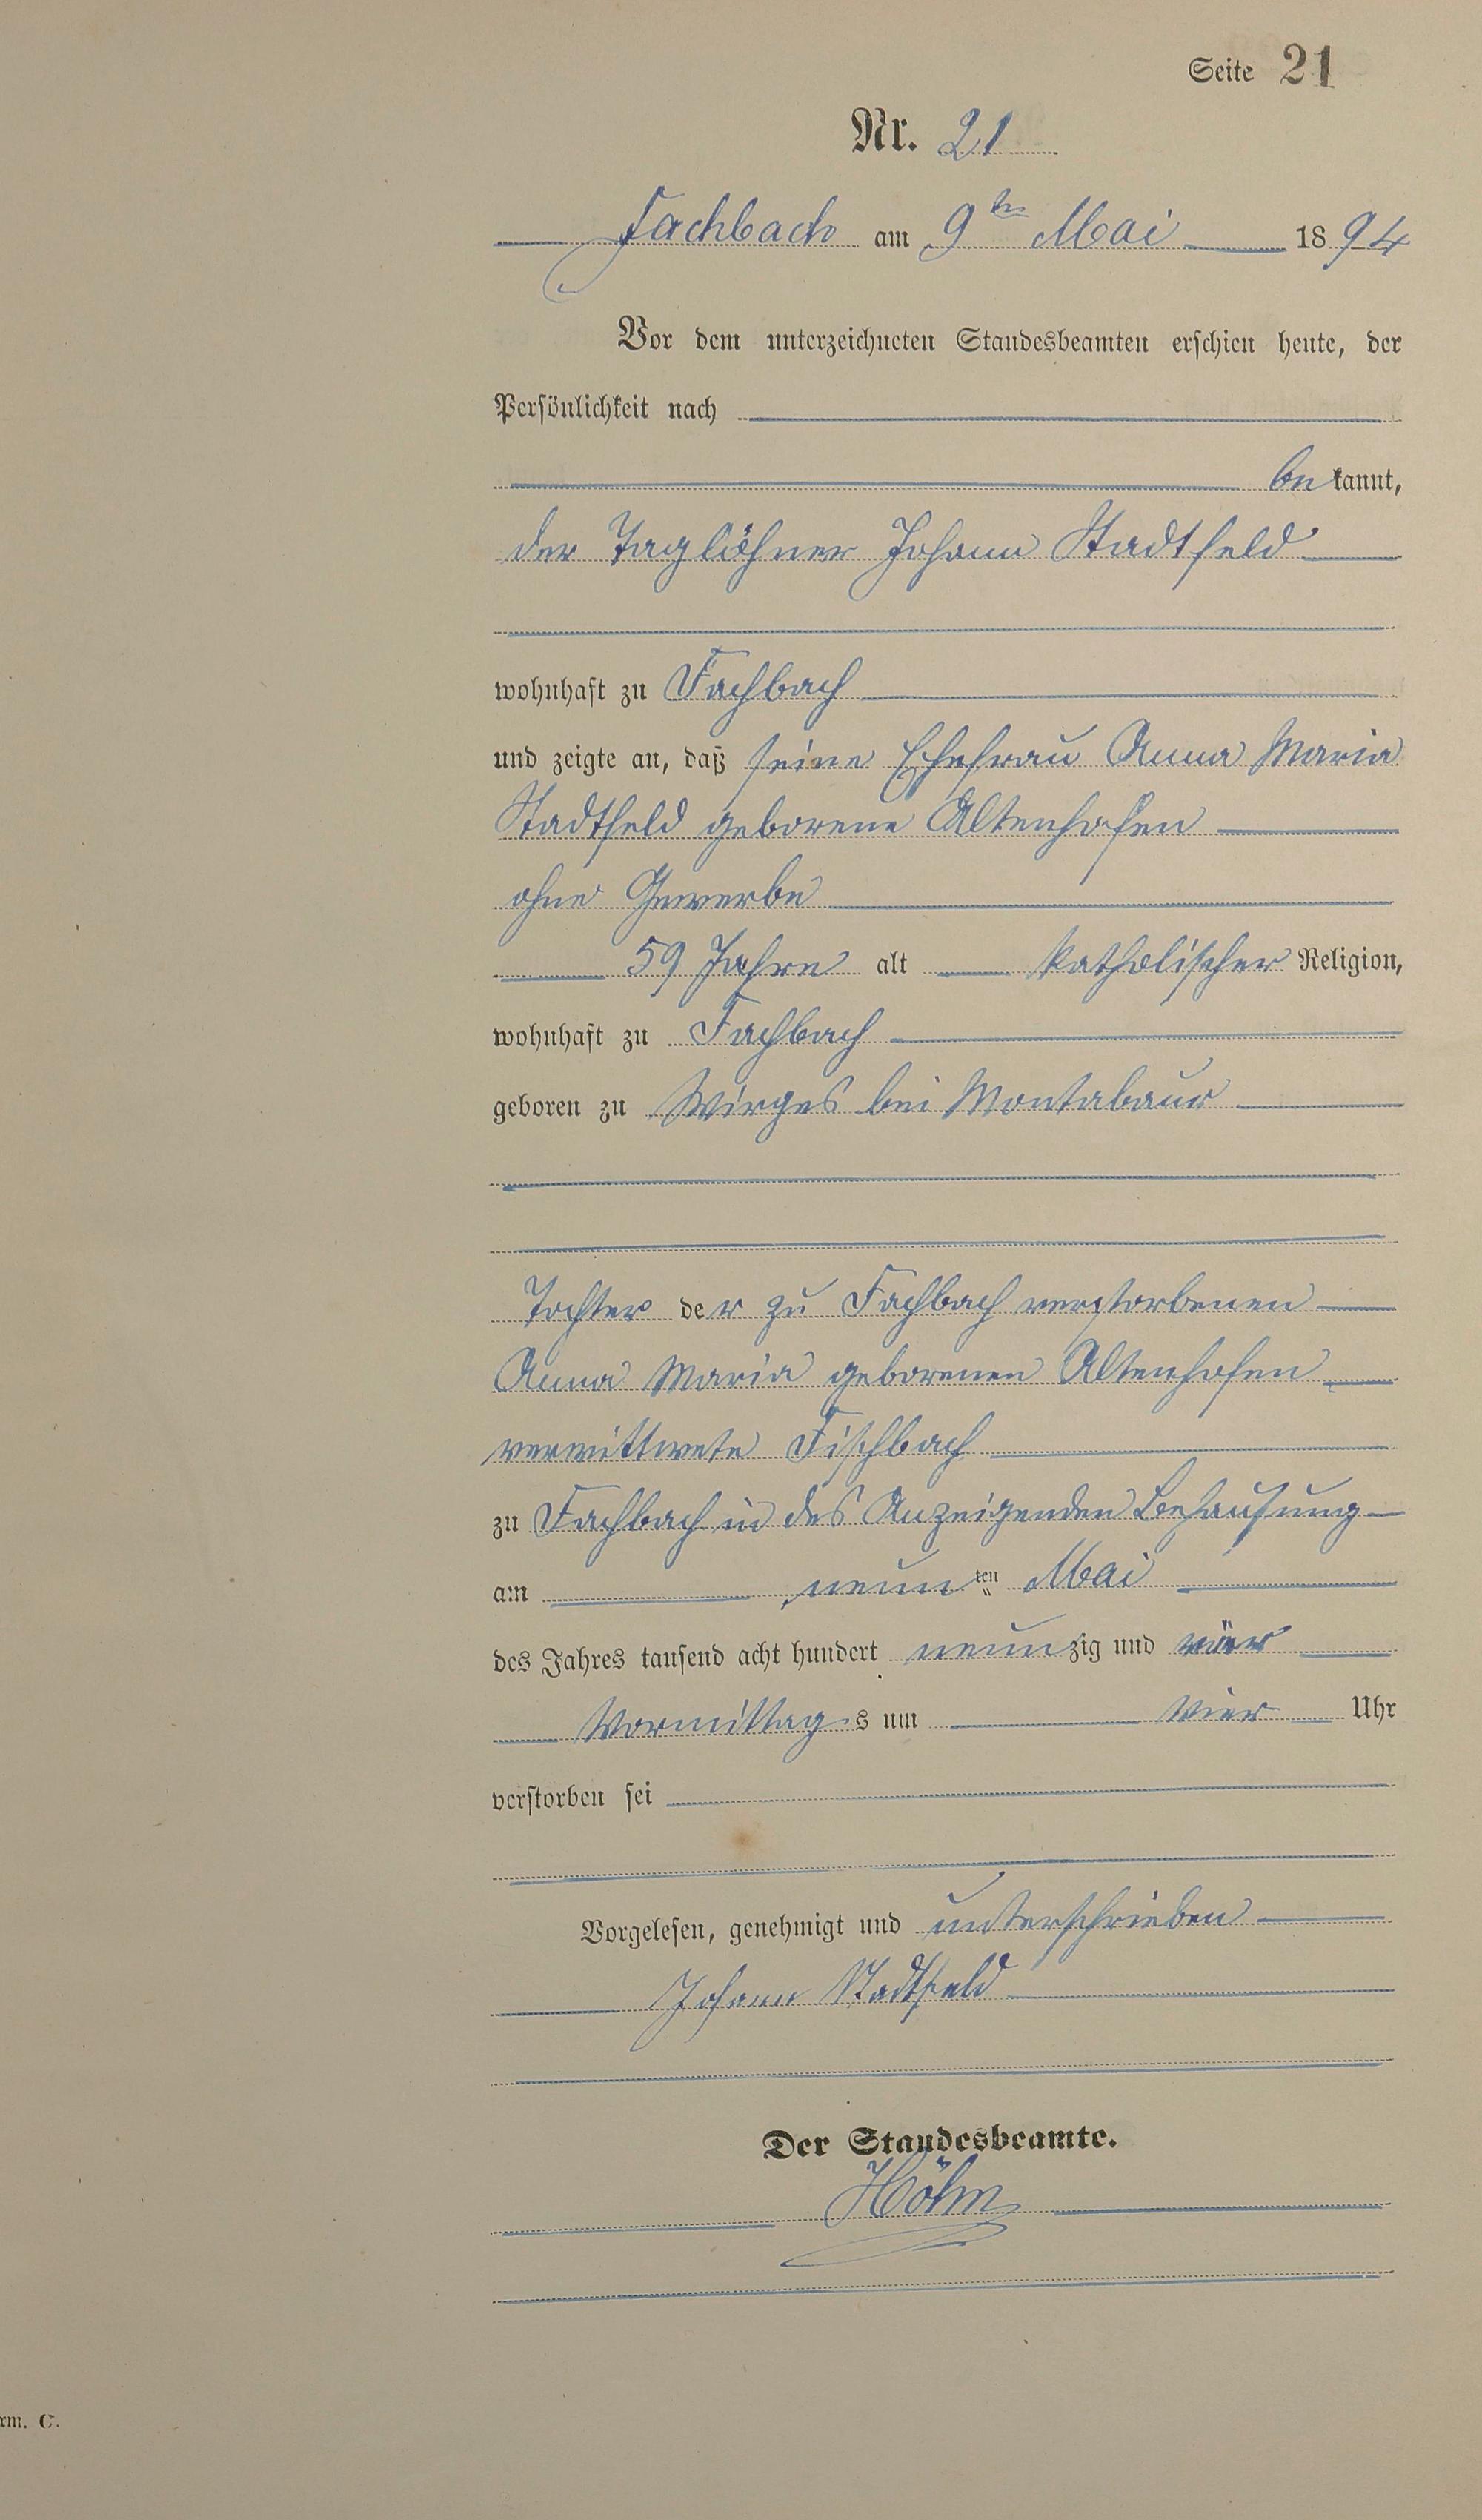 Seite 21
Nr. 21
Fachbach am 9ten Mai 1894
Vor dem unterzeichneten Standesbeamten erschien heute, der
Persönlichkeit nach
bekannt,
der Taglöhner Johann Stadtfeld
wohnhaft zu Fachbach
und zeigte an, daß seine Ehefrau Anna Maria
Stadtfeld geborene Altenhofen
ohne Gewerbe
59 Jahre alt katholischer Religion,
wohnhaft zu Fachbach
geboren zu Wirges bei Montabaur
Tochter der zu Fachbach verstorbenen
Anna Maria geborenen Altenhofen
verwittwete Fischbach
zu Fachbach in des Anzeigenden Behausung
am neunten Mai
des Jahres tausend acht hundert neunzig und vier
Vormittags um vier Uhr
verstorben sei
Vorgelesen, genehmigt und unterschrieben
Johann Stadtfeld
Der Standesbeamte.
Höhn
rm. C.